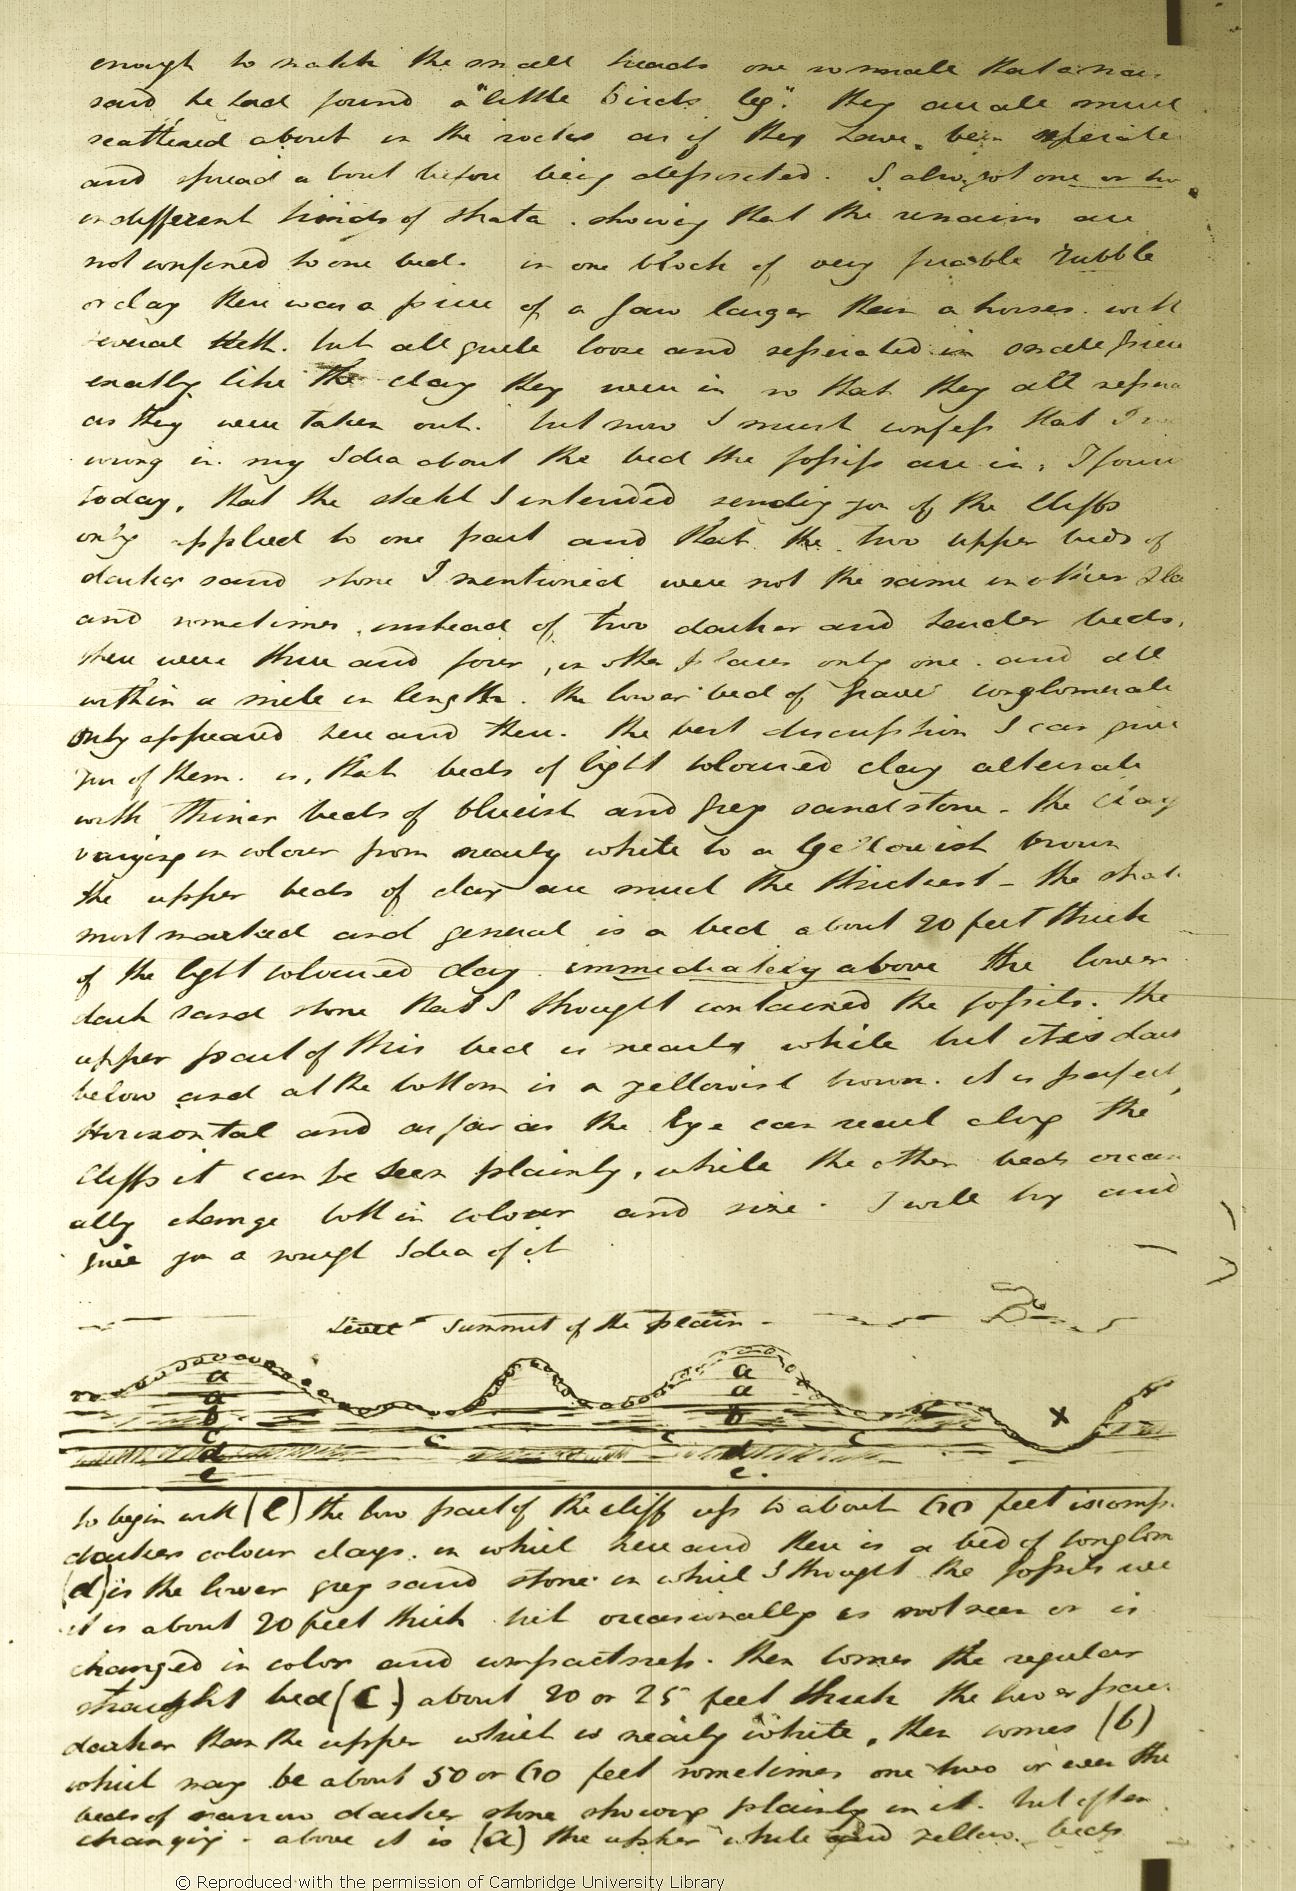 enough to match the small heads one so small that a man
said he had found a "little birds leg". they are all much
scattered about in the rocks as if they have been seperate
and spread about before being deposited. I always got one or two
in different kinds of strata. showing that the remains are
not confined to one bed. in one block of very friable rubble
or clay there was a piece of a Jaw larger than a horses. with
several teeth. but all quite loose and seperated in small piece
exactly like the clay they were in so that they all sepera
as they were taken out. but now I must confess that I was
wrong in my Idea about the bed the fossils are in, I found
today, that the sketch I intended sending you of the Cliffs
only applied to one part and that the two upper beds of
darker sand stone I mentioned were not the same in other pla
and sometimes instead of two darker and harder beds,
there were three and four, in other places only one. and all
within a mile in length. the lower bed of conglomerate
only appeared here and there. the best discription I can give
you of them. is, that beds of light coloured clay alternate
with thiner beds of blueish and grey sandstone - the clay
varying in colour from nearly white to a yellowish brown
the upper beds of clay are much the thickest - the strat
most marked and general is a bed about 20 feet thick
of the light coloured clay immediately above the lower
dark sand stone that I thought contained the fossils. the
upper part of this bed is nearly white but it is dark
below and at the bottom is a yellowish brown. it is perfect
Horizontal and as far as the Eye can reach along the
Cliffs it can be seen plainly, while the other beds occasi
ally change both in colour and size. I will try and
give you a rough Idea of it
Level summit of the plain -
a a
a a
b b x
c c c c
d d
e e
to begin with (e) the low part of the cliff up to about 60 feet is comp
darker colour clays. in which here and there is a bed of conglom
(d) is the lower grey sand stone in which I thought the fossils we
it is about 20 feet thick but occasionally is not seen or is
changed in color and compactness. then comes the regular
straight bed (c) about 20 or 25 feet thick the lower part
darker than the upper which is nearly white, then comes (b)
which may be about 50 or 60 feet sometimes one two or even the
beds of narrow darker stone showing plainly in it. but often
changing - above it is (a) the upper white and yellow beds
© Reproduced with the permission of Cambridge University Library